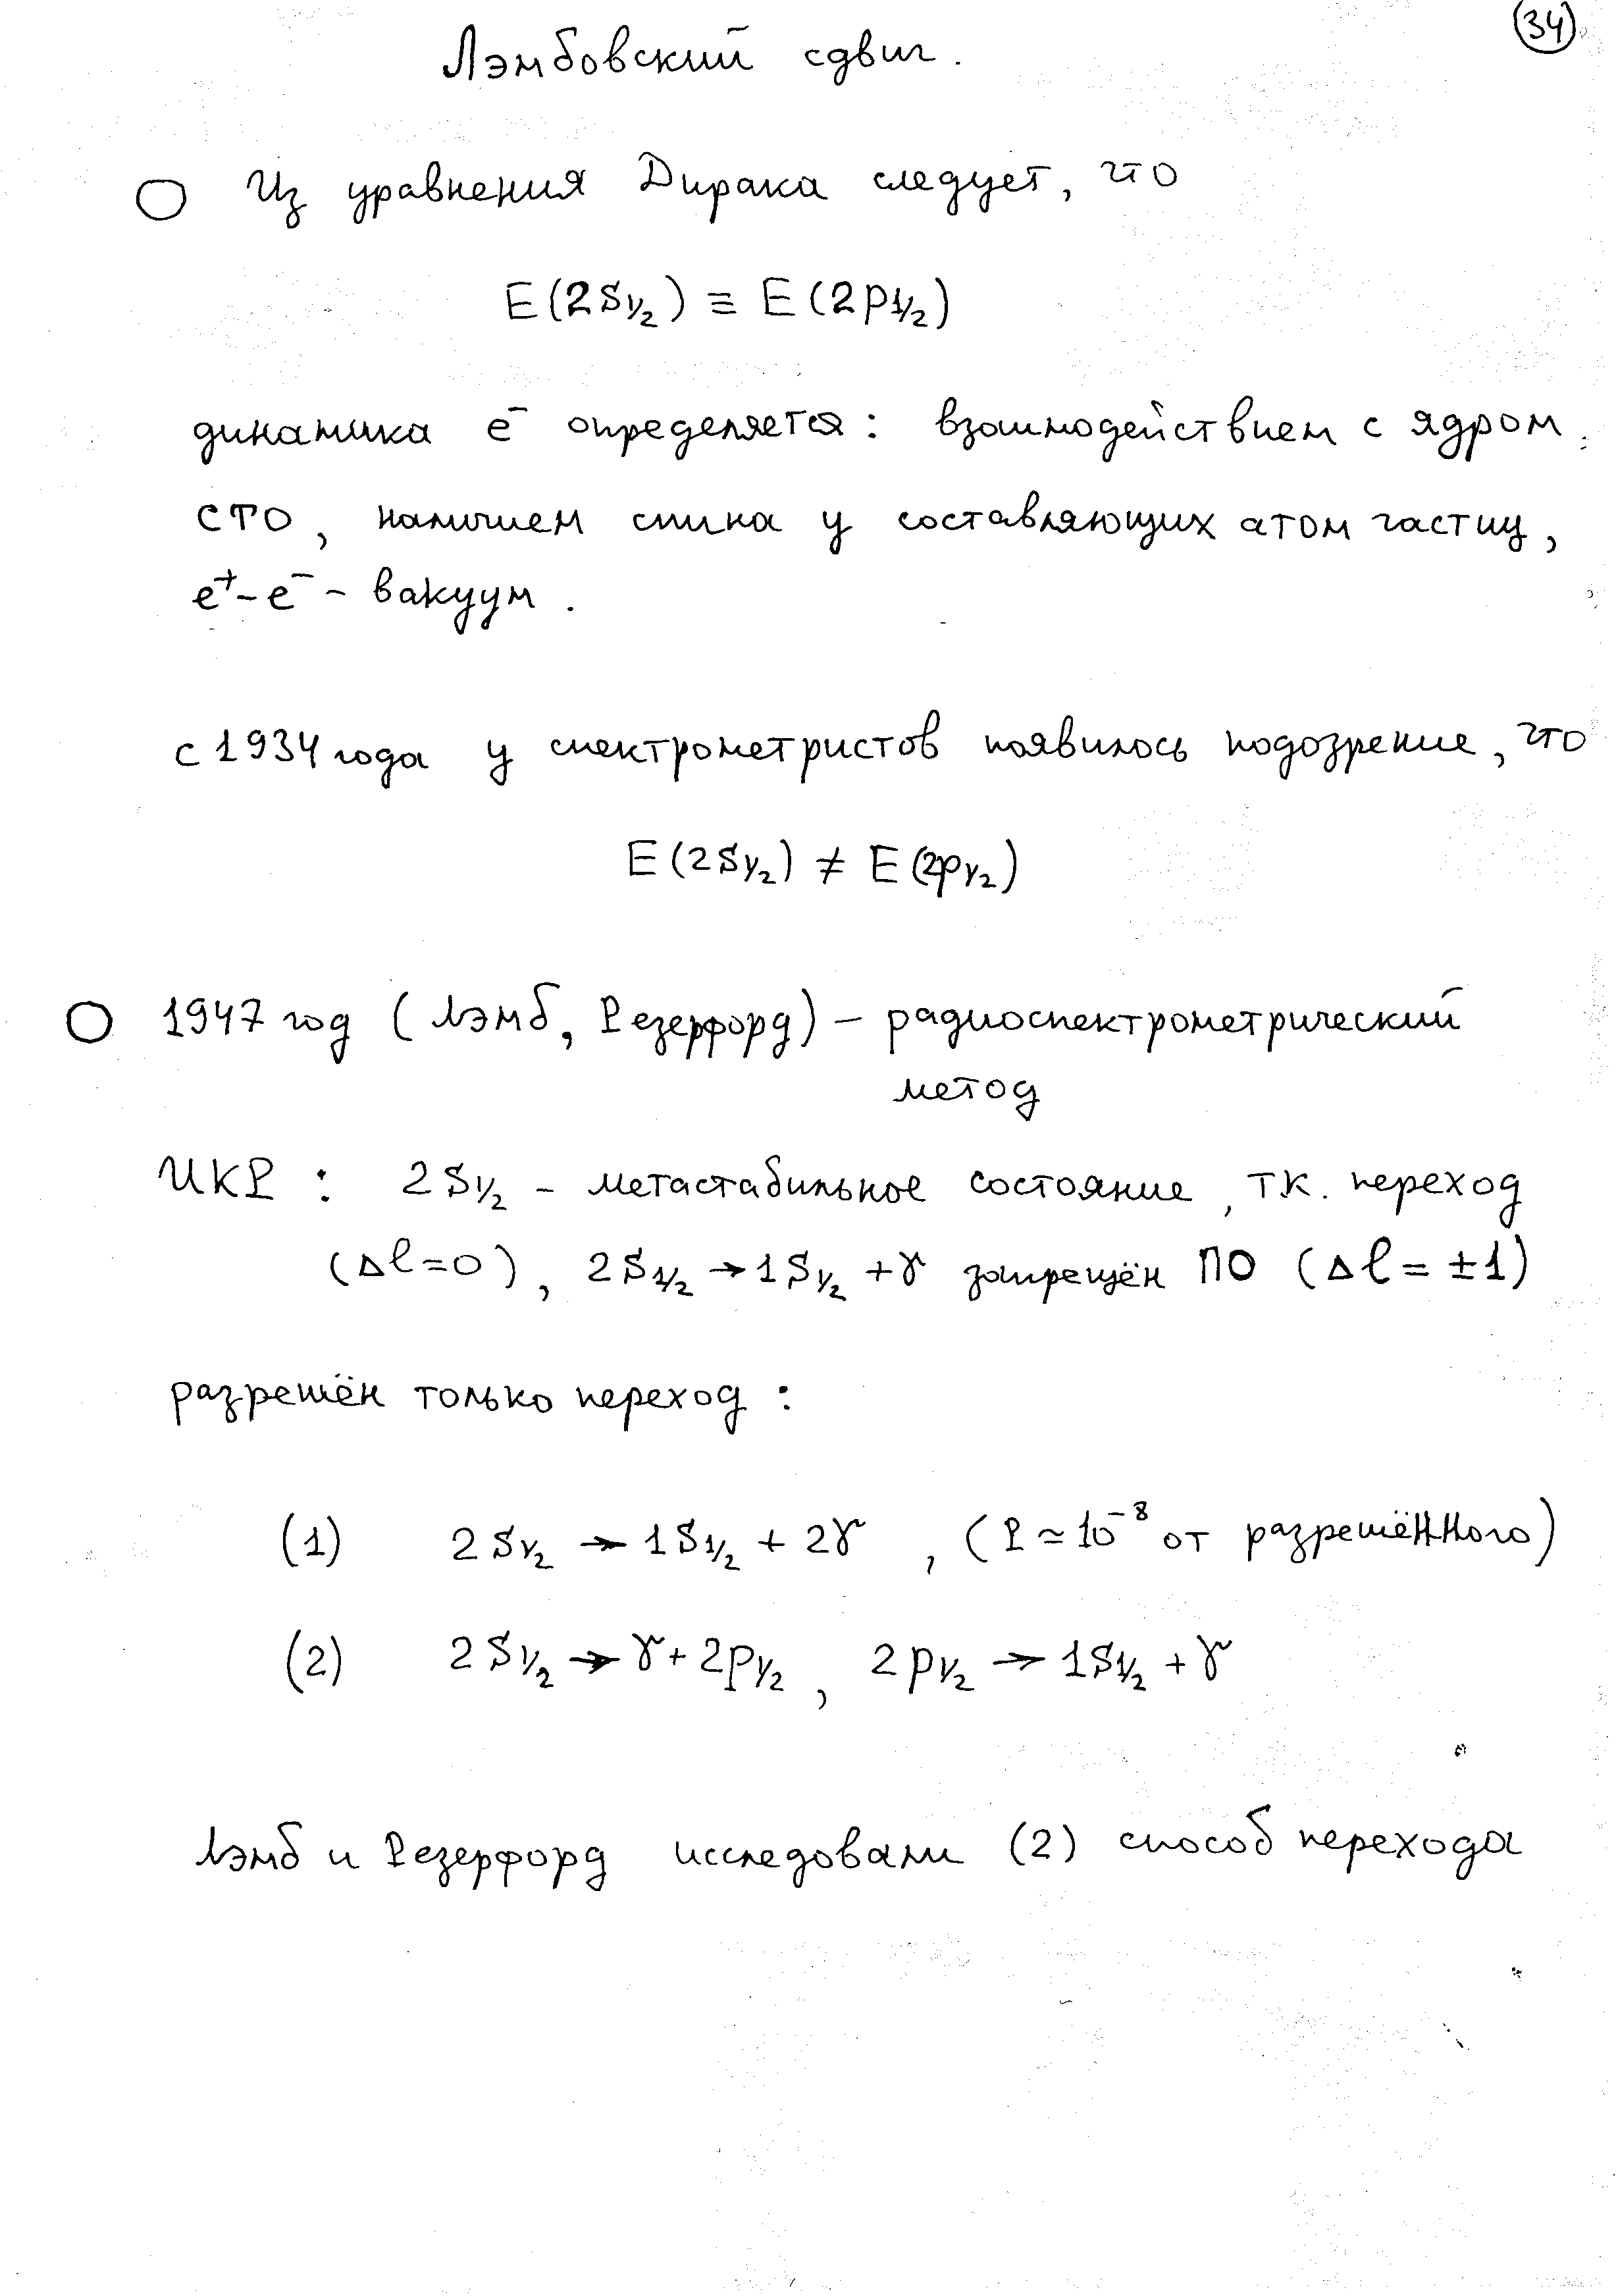 34
Лэмбовский сдвиг.
Из уравнения Дирака следует, что
E(2S1/2) ≡ E(2p1/2)
динамика e⁻ определяется: взаимодействием с ядром,
СТО, наличием спина у составляющих атом частиц,
e⁺-e⁻ - вакуум.
с 1934 года у спектрометристов появилось подозрение, что
E(2S1/2) ≠ E(2p1/2)
1947 год (Лэмб, Резерфорд) – радиоспектрометрический
метод
ИКР: 2S1/2 – метастабильное состояние, т.к. переход
(Δl=0), 2S1/2 → 1S1/2 + γ запрещён ПО (Δl = ±1)
разрешён только переход:
(1) 2S1/2 → 1S1/2 + 2γ, (P ≃ 10⁻⁸ от разрешённого)
(2) 2S1/2 → γ + 2p1/2, 2p1/2 → 1S1/2 + γ
Лэмб и Резерфорд исследовали (2) способ перехода